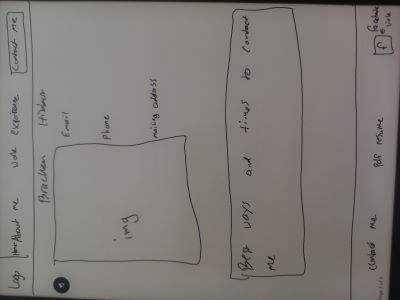 Logo Home About me work experience Contact Me
Bracken
Email
Phone
img
mailing address
Best ways and times to contact
me
Contact me pdf resume f facebook
link
Page 2 of 3